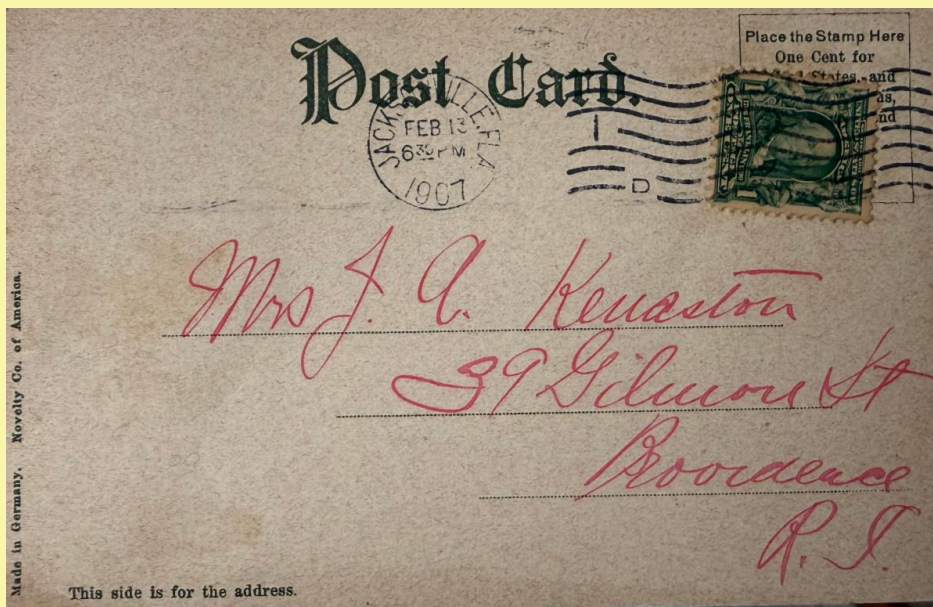 Post Card.
Place the Stamp Here
One Cent for
States, and
JACKSONVILLE, FLA
FEB 13
6 30 PM
1907
D
1
Mrs J. A. Kenaston
39 Gilmore St
Providence
R. I.
Made in Germany. Novelty Co. of America.
This side is for the address.